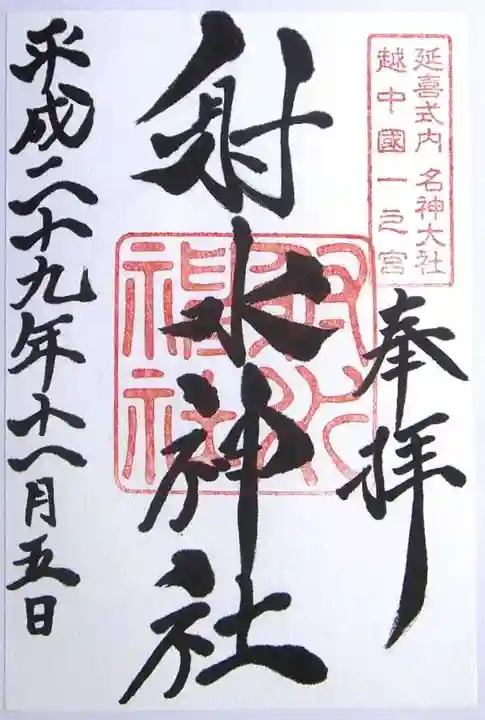 延喜式内 名神大社
越中國一之宮
奉拝
射水神社
射水
神社
平成二十九年十一月五日